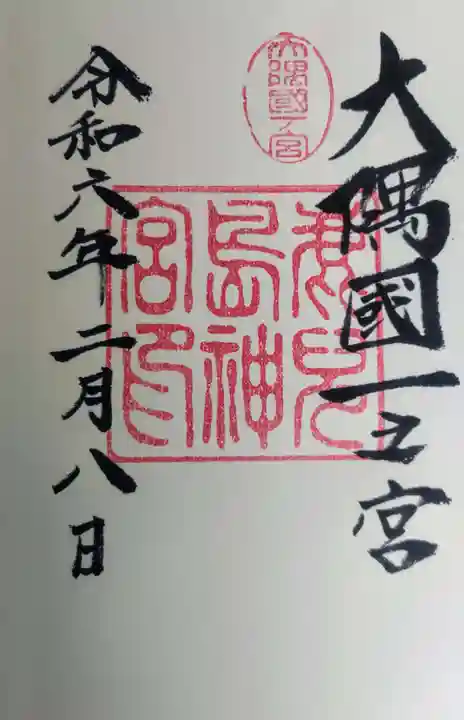 大隅國一之宮
大隅國一ノ宮
鹿兒
島神
宮印
令和六年二月八日